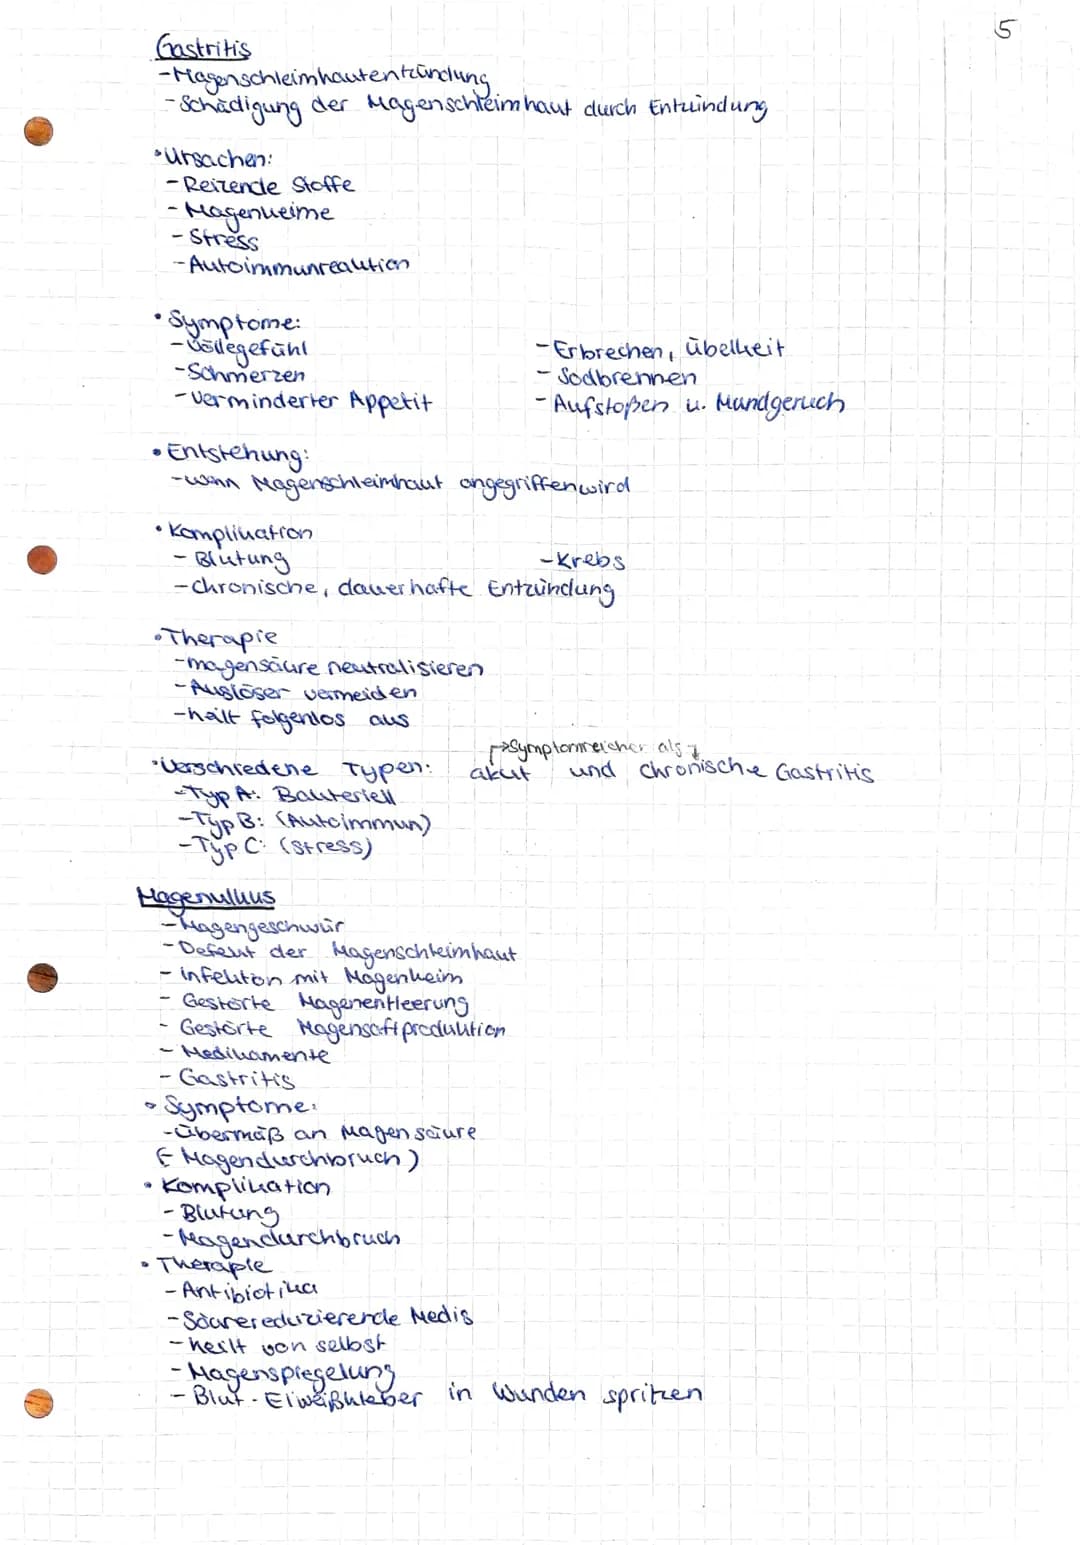 5
Gastritis
- Magenschleimhautentzündung
- Schädigung der Magenschleimhaut durch Entzündung
• Ursachen:
- Reizende Stoffe
- Magenkeime
- Stress
- Autoimmunreaktion
• Symptome:
- Völlegefühl
- Schmerzen
- verminderter Appetit
- Erbrechen, Übelkeit
- Sodbrennen
- Aufstoßen u. Mundgeruch
• Entstehung:
- wenn Magenschleimhaut angegriffen wird
• Komplikation
- Blutung - Krebs
- chronische, dauerhafte Entzündung
• Therapie
- magensäure neutralisieren
- Auslöser vermeiden
- heilt folgenlos aus
→ Symptomreicher als
• Verschiedene Typen: akut und chronische Gastritis
- Typ A: Bakteriell
- Typ B: (Autoimmun)
- Typ C: (Stress)
Magenulkus
- Magengeschwür
- Defekt der Magenschleimhaut
- Infekton mit Magenkeim
- Gestörte Magenentleerung
- Gestörte Magensaftproduktion
- Medikamente
- Gastritis
• Symptome:
- Übermaß an Magensäure
(- Magendurchbruch)
• Komplikation
- Blutung
- Magendurchbruch
• Therapie
- Antibiotika
- Säurereduzierende Medis
- heilt von selbst
- Magenspiegelung
- Blut-Eiweißkleber in Wunden spritzen